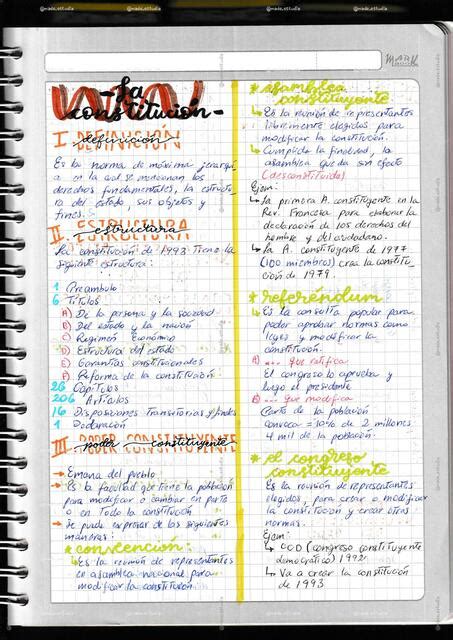 @made.estudia
MARK
-La
constitución-
I DEFINICIÓN
definición
Es la norma de máxima jerarquí
a en la cual se mencionan los
derechos fundamentales, la estructu
ra del estado, sus objetos y
fines.
II ESTRUCTURA
estructura
La constitución de 1993 tiene la
siguiente estructura:
1 Preambulo
6 Títulos
A) De la persona y la sociedad
B) Del estado y la nación
C) Regimen Económico
D) Estructura del estado
E) Garantías constitucionales
F) Reforma de la constitución
26 Capítulos
206 Artículos
16 Disposiciones Transitorias y finales
1 Declaración
III PODER CONSTITUYENTE
poder constituyente
→ Emana del pueblo
→ Es la facultad que tiene la población
para modificar o cambiar en parte
o en todo la constitución
→ Se puede expresar de las siguientes
maneras:
* convención:
↳ Es la reunión de representantes
en asamblea nacional para
modificar la constitución.
* asamblea
constituyente
↳ Es la reunión de representantes
libremente elegidos para
modificar la constitución.
↳ Cumplida la finalidad, la
asamblea queda sin efecto
(desconstituida)
Ejem:
↳ La primera A. constituyente en la
Rev. Francesa para elaborar la
declaración de los derechos del
hombre y del ciudadano.
↳ La A. constituyente de 1977
(100 miembros) crea la constitu
ción de 1979.
* referéndum
↳ Es la consulta popular para
poder aprobar normas como
leyes y modificar la
constitución.
A) ... que ratifica
El congreso lo aprueba y
luego el presidente
B) ... que modifica
Parte de la población
convoca = 10% de 2 millones
4 mil de la población.
* el congreso
constituyente
Es la reunión de representantes
elegidos, para crear o modificar
la constitución y crear otras
normas.
Ejem:
↳ CCD (congreso constituyente
democrático) 1992
↳ Va a crear la constitución
de 1993